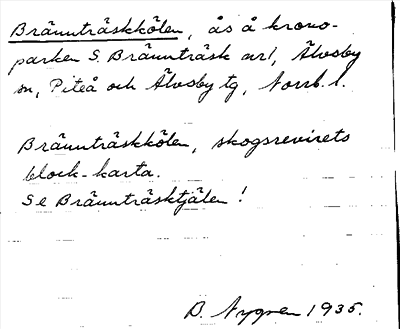 Brännträskkölen, ås å krono-
parken S. Brännträsk avd, Älvsby
sn, Piteå och Älvsby tg, Norrb. l.
Brännträskkölen, skogsrevirets
block-karta.
Se Brännträsktjälen!
D. Nygren 1935.